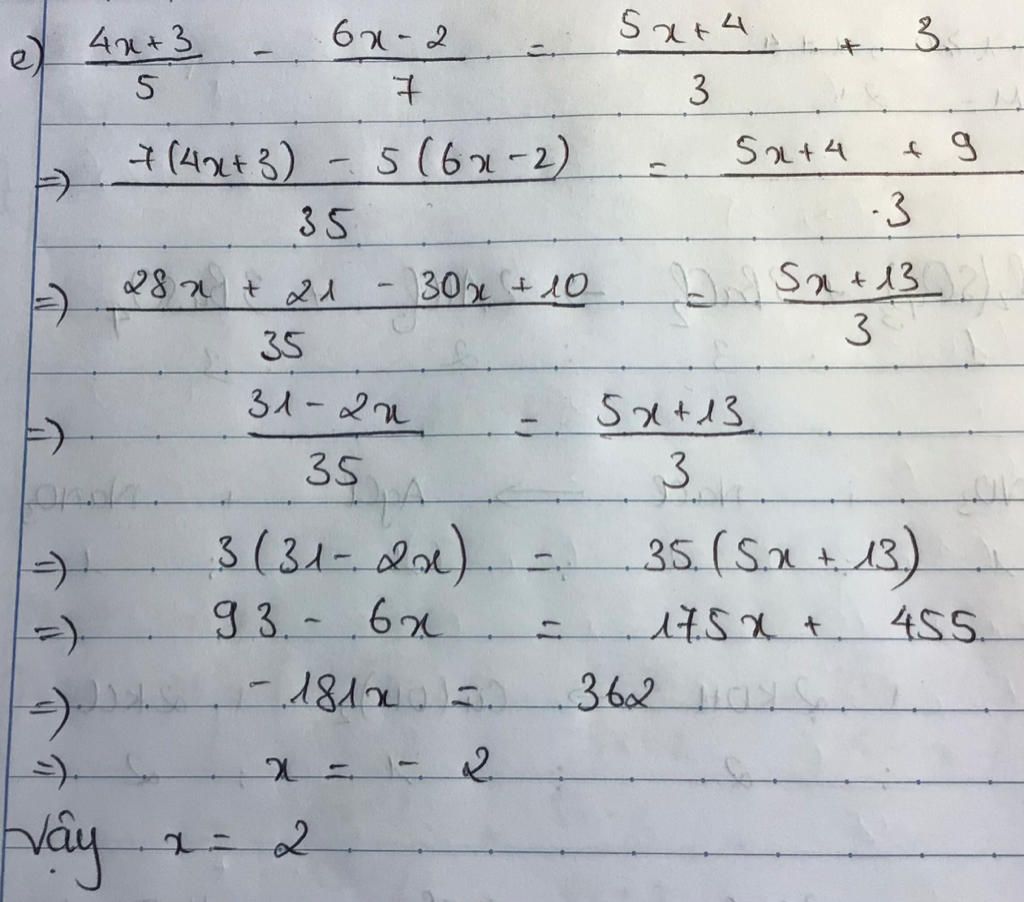 e) (4x+3)/5 - (6x-2)/7 = (5x+4)/3 + 3
=> (7(4x+3) - 5(6x-2))/35 = (5x+4 + 9)/3
=> (28x + 21 - 30x + 10)/35 = (5x+13)/3
=> (31-2x)/35 = (5x+13)/3
=> 3(31-2x) = 35(5x+13)
=> 93 - 6x = 175x + 455
=> -181x = 362
=> x = -2
Vậy x = 2